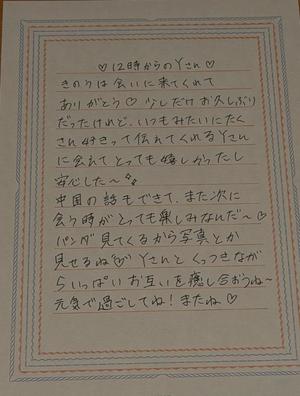 ♡12時からのYさん♡
きのうは会いに来てくれて
ありがとう♡ 少しだけお久しぶり
だったけれど、いつもみたいにたく
さん好きって伝えてくれるYさん
に会えてとっても嬉しかったし
安心した〜
中国の話もできて、また次に
会う時がとっても楽しみなんだ〜♡
パンダ見てくるから写真とか
見せるね Yさんとくっつきなが
らいっぱいお互いを癒し合おうね〜
元気で過ごしてね!またね♡